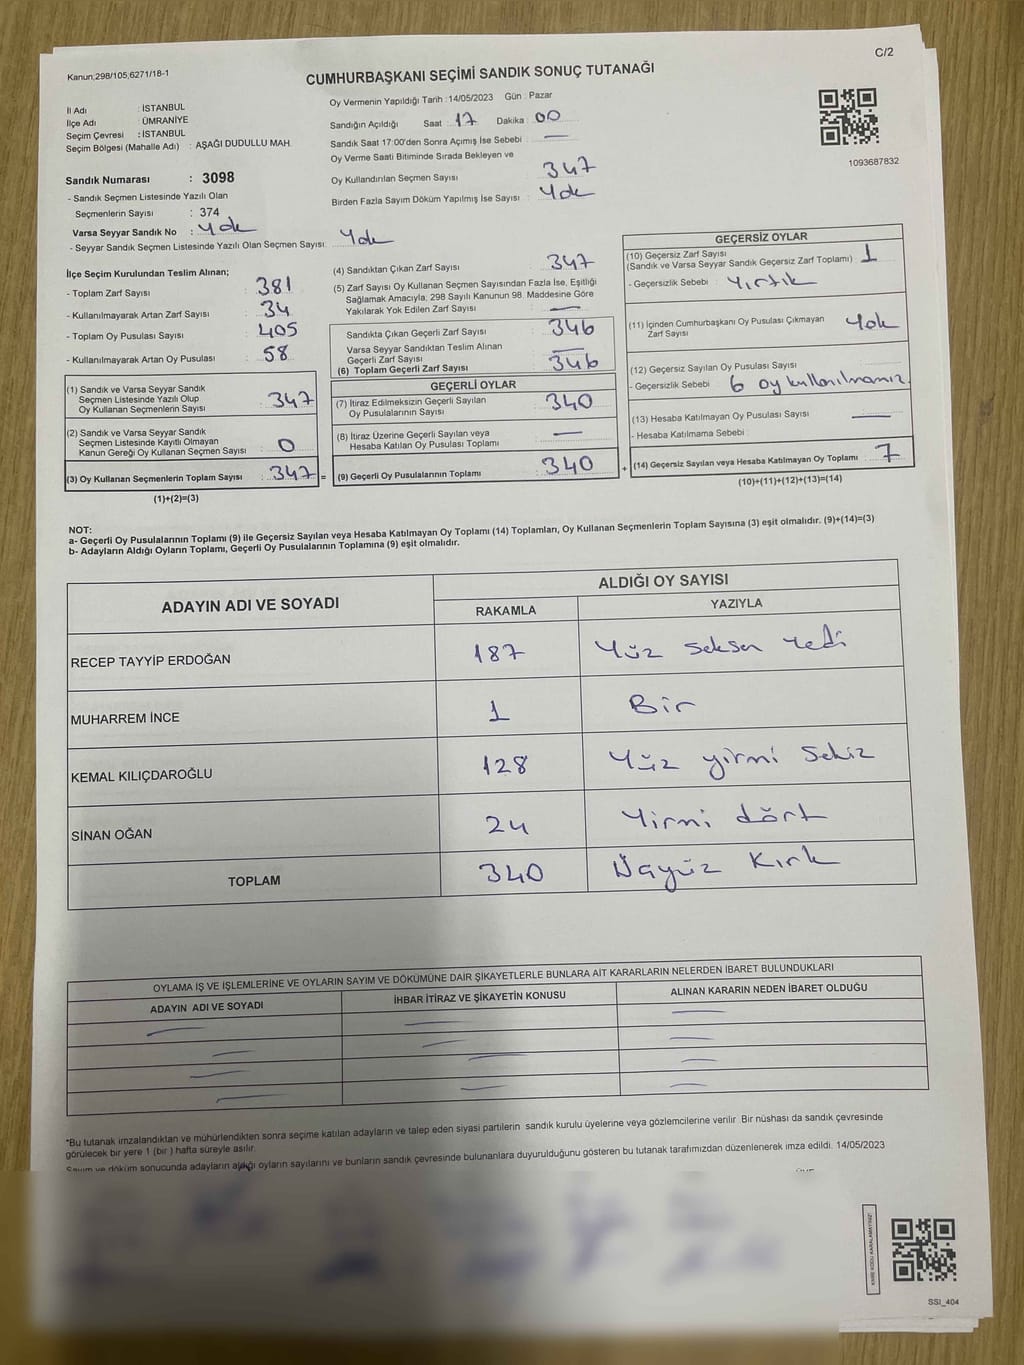 C/2
Kanun,298/105,6271/18-1
CUMHURBAŞKANI SEÇİMİ SANDIK SONUÇ TUTANAĞI
İl Adı : İSTANBUL
İlçe Adı : ÜMRANİYE
Seçim Çevresi : İSTANBUL
Seçim Bölgesi (Mahalle Adı) : AŞAĞI DUDULLU MAH.
Sandık Numarası : 3098
- Sandık Seçmen Listesinde Yazılı Olan
Seçmenlerin Sayısı : 374
Varsa Seyyar Sandık No : Yok
- Seyyar Sandık Seçmen Listesinde Yazılı Olan Seçmen Sayısı: Yok
Oy Vermenin Yapıldığı Tarih :14/05/2023 Gün : Pazar
Sandığın Açıldığı Saat : 17 Dakika : 00
Sandık Saat 17:00'den Sonra Açımış İse Sebebi : —
Oy Verme Saati Bitiminde Sırada Bekleyen ve
Oy Kullandırılan Seçmen Sayısı : 347
Birden Fazla Sayım Döküm Yapılmış İse Sayısı : Yok
1093687832
İlçe Seçim Kurulundan Teslim Alınan;
- Toplam Zarf Sayısı : 381
- Kullanılmayarak Artan Zarf Sayısı : 34
- Toplam Oy Pusulası Sayısı : 405
- Kullanılmayarak Artan Oy Pusulası : 58
(1) Sandık ve Varsa Seyyar Sandık
Seçmen Listesinde Yazılı Olup
Oy Kullanan Seçmenlerin Sayısı : 347
(2) Sandık ve Varsa Seyyar Sandık
Seçmen Listesinde Kayıtlı Olmayan
Kanun Gereği Oy Kullanan Seçmen Sayısı : 0
(3) Oy Kullanan Seçmenlerin Toplam Sayısı : 347 =
(1)+(2)=(3)
(4) Sandıktan Çıkan Zarf Sayısı : 347
(5) Zarf Sayısı Oy Kullanan Seçmen Sayısından Fazla İse, Eşitliği
Sağlamak Amacıyla; 298 Sayılı Kanunun 98. Maddesine Göre
Yakılarak Yok Edilen Zarf Sayısı : —
Sandıkta Çıkan Geçerli Zarf Sayısı : 346
Varsa Seyyar Sandıktan Teslim Alınan
Geçerli Zarf Sayısı : —
(6) Toplam Geçerli Zarf Sayısı : 346
GEÇERLİ OYLAR
(7) İtiraz Edilmeksizin Geçerli Sayılan
Oy Pusulalarının Sayısı : 340
(8) İtiraz Üzerine Geçerli Sayılan veya
Hesaba Katılan Oy Pusulası Toplamı : —
(9) Geçerli Oy Pusulalarının Toplamı : 340 +
GEÇERSİZ OYLAR
(10) Geçersiz Zarf Sayısı
(Sandık ve Varsa Seyyar Sandık Geçersiz Zarf Toplamı) : 1
- Geçersizlik Sebebi : Yırtık
(11) İçinden Cumhurbaşkanı Oy Pusulası Çıkmayan
Zarf Sayısı : Yok
(12) Geçersiz Sayılan Oy Pusulası Sayısı :
- Geçersizlik Sebebi : 6 oy kullanılmamış.
(13) Hesaba Katılmayan Oy Pusulası Sayısı : —
- Hesaba Katılmama Sebebi :
(14) Geçersiz Sayılan veya Hesaba Katılmayan Oy Toplamı : 7
(10)+(11)+(12)+(13)=(14)
NOT:
a- Geçerli Oy Pusulalarının Toplamı (9) ile Geçersiz Sayılan veya Hesaba Katılmayan Oy Toplamı (14) Toplamları, Oy Kullanan Seçmenlerin Toplam Sayısına (3) eşit olmalıdır. (9)+(14)=(3)
b- Adayların Aldığı Oyların Toplamı, Geçerli Oy Pusulalarının Toplamına (9) eşit olmalıdır.
ADAYIN ADI VE SOYADI ALDIĞI OY SAYISI
RAKAMLA YAZIYLA
RECEP TAYYİP ERDOĞAN 187 Yüz seksen Yedi
MUHARREM İNCE 1 Bir
KEMAL KILIÇDAROĞLU 128 Yüz yirmi Sekiz
SİNAN OĞAN 24 Yirmi dört
TOPLAM 340 Üçyüz Kırk
OYLAMA İŞ VE İŞLEMLERİNE VE OYLARIN SAYIM VE DÖKÜMÜNE DAİR ŞİKAYETLERLE BUNLARA AİT KARARLARIN NELERDEN İBARET BULUNDUKLARI
ADAYIN ADI VE SOYADI İHBAR İTİRAZ VE ŞİKAYETİN KONUSU ALINAN KARARIN NEDEN İBARET OLDUĞU
*Bu tutanak imzalandıktan ve mühürlendikten sonra seçime katılan adayların ve talep eden siyasi partilerin sandık kurulu üyelerine veya gözlemcilerine verilir. Bir nüshası da sandık çevresinde
görülecek bir yere 1 (bir ) hafta süreyle asılır.
Sayım ve döküm sonucunda adayların aldığı oyların sayılarını ve bunların sandık çevresinde bulunanlara duyurulduğunu gösteren bu tutanak tarafımızdan düzenlenerek imza edildi. 14/05/2023
KARE KODU KARALAMAYINIZ!
SSI_404